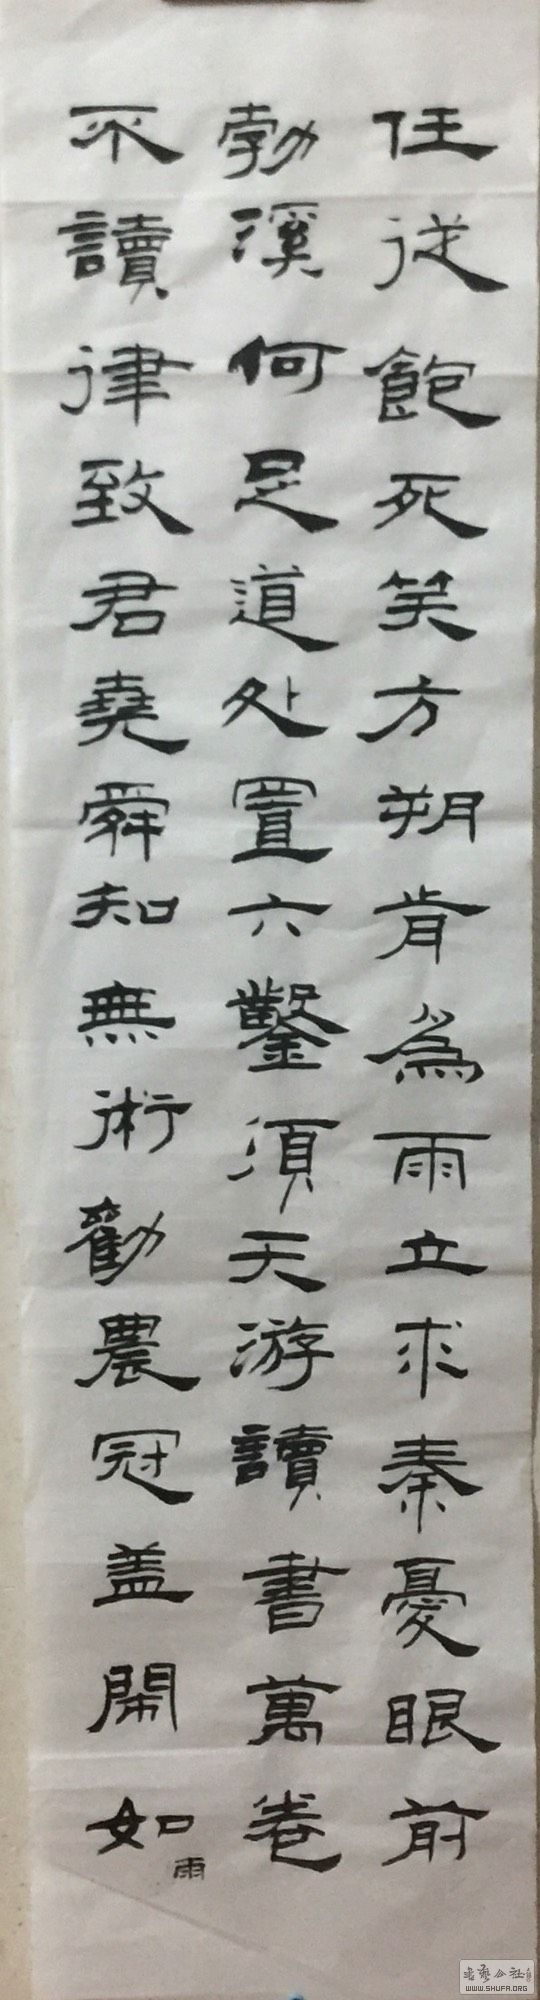 任従飽死笑方朔肯為雨立求秦憂眼前
勃溪何足道处置六鑿須天游讀書萬卷
不讀律致君堯舜知無術勸農冠盖閙如
雨
WWW.SHUFA.ORG